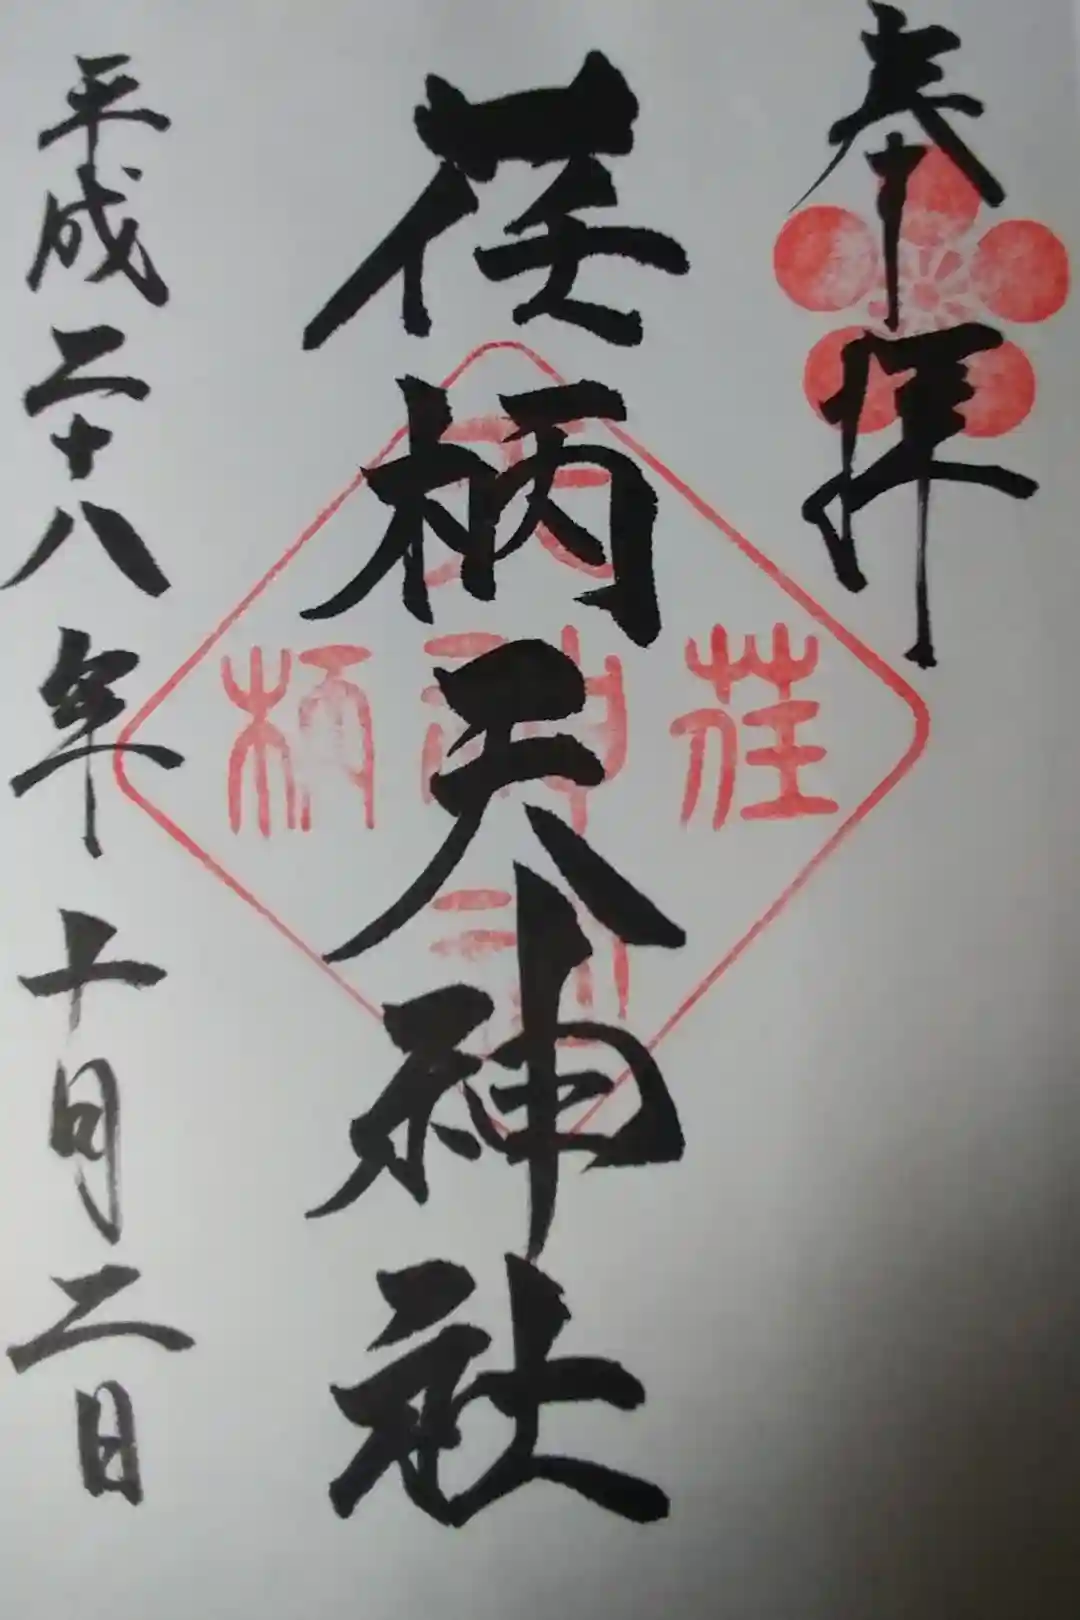 奉拝
荏柄天神社
平成二十八年十月二日
荏
柄
天
神
社